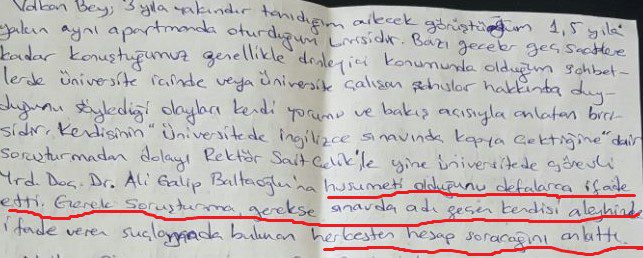 Volkan Bey, 3 yıla yakındır tanıdığım ailecek görüştüğüm 1,5 yıla
yakın aynı apartmanda oturduğum birisidir. Bazı geceler geç saatlere
kadar konuştuğumuz genellikle dinleyici konumunda olduğum sohbet-
lerde üniversite içinde veya üniversite çalışan şahıslar hakkında duy-
duğunu söylediği olayları kendi yorumu ve bakış açısıyla anlatan biri-
sidir. Kendisinin "Üniversitede ingilizce sınavında kopya çektiğine" dair
soruşturmadan dolayı Rektör Sait Çelik'le yine üniversitede görevli
Yrd. Doç. Dr. Ali Galip Baltaoğlu'na husumeti olduğunu defalarca ifade
etti. Gerek soruşturma, gerekse sınavda adı geçen kendisi aleyhinde
ifade veren suçlamada bulunan herkesten hesap soracağını anlattı.